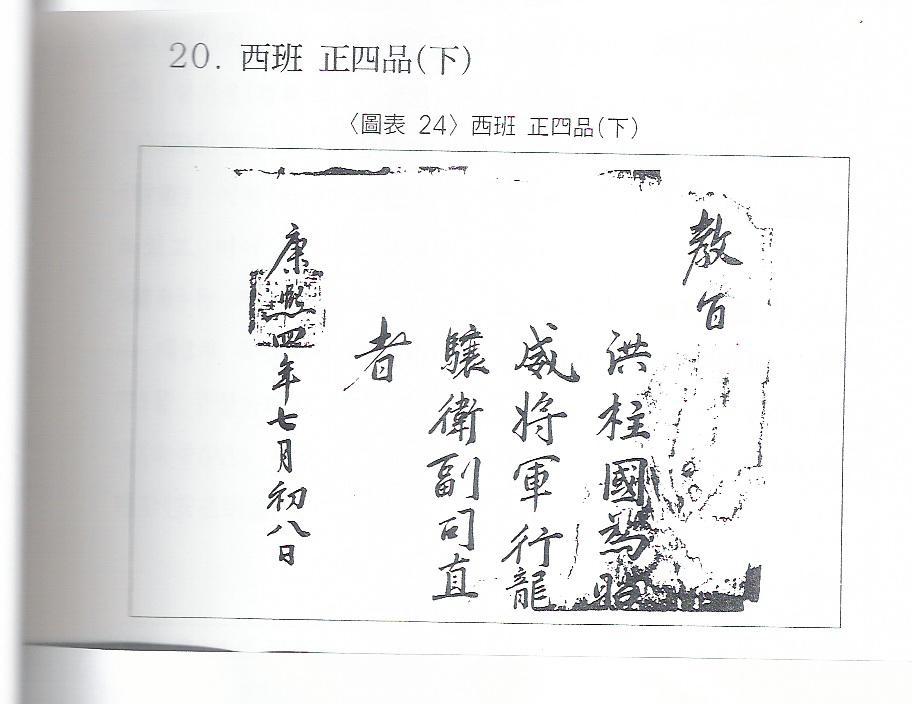 20. 西班 正四品(下)
〈圖表 24〉 西班 正四品(下)
教旨
洪柱國爲昭
威將軍行龍
驤衛副司直
者
康熙四年七月初八日